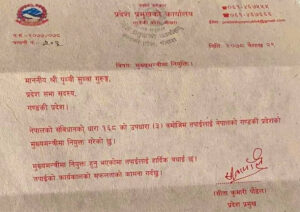 प्रदेश प्रमुखको कार्यालय
गण्डकी प्रदेश, पोखरा
विषयः मुख्यमन्त्रीमा नियुक्ति।
माननीय श्री पृथ्वी सुब्बा गुरुङ,
प्रदेश सभा सदस्य,
गण्डकी प्रदेश।
नेपालको संविधानको धारा १६८ को उपधारा (३) बमोजिम तपाईंलाई नेपालको गण्डकी प्रदेशको
मुख्यमन्त्रीमा नियुक्त गरेको छु।
मुख्यमन्त्रीमा नियुक्त हुनु भएकोमा तपाईंलाई हार्दिक बधाई छ।
तपाईंको कार्यकालको सफलताको कामना गर्दछु।
(सीता कुमारी पौडेल)
प्रदेश प्रमुख